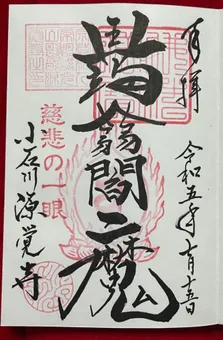 奉拝
令和五年
十五日
蒟蒻閻魔
慈悲の一眼
小石川源覚寺